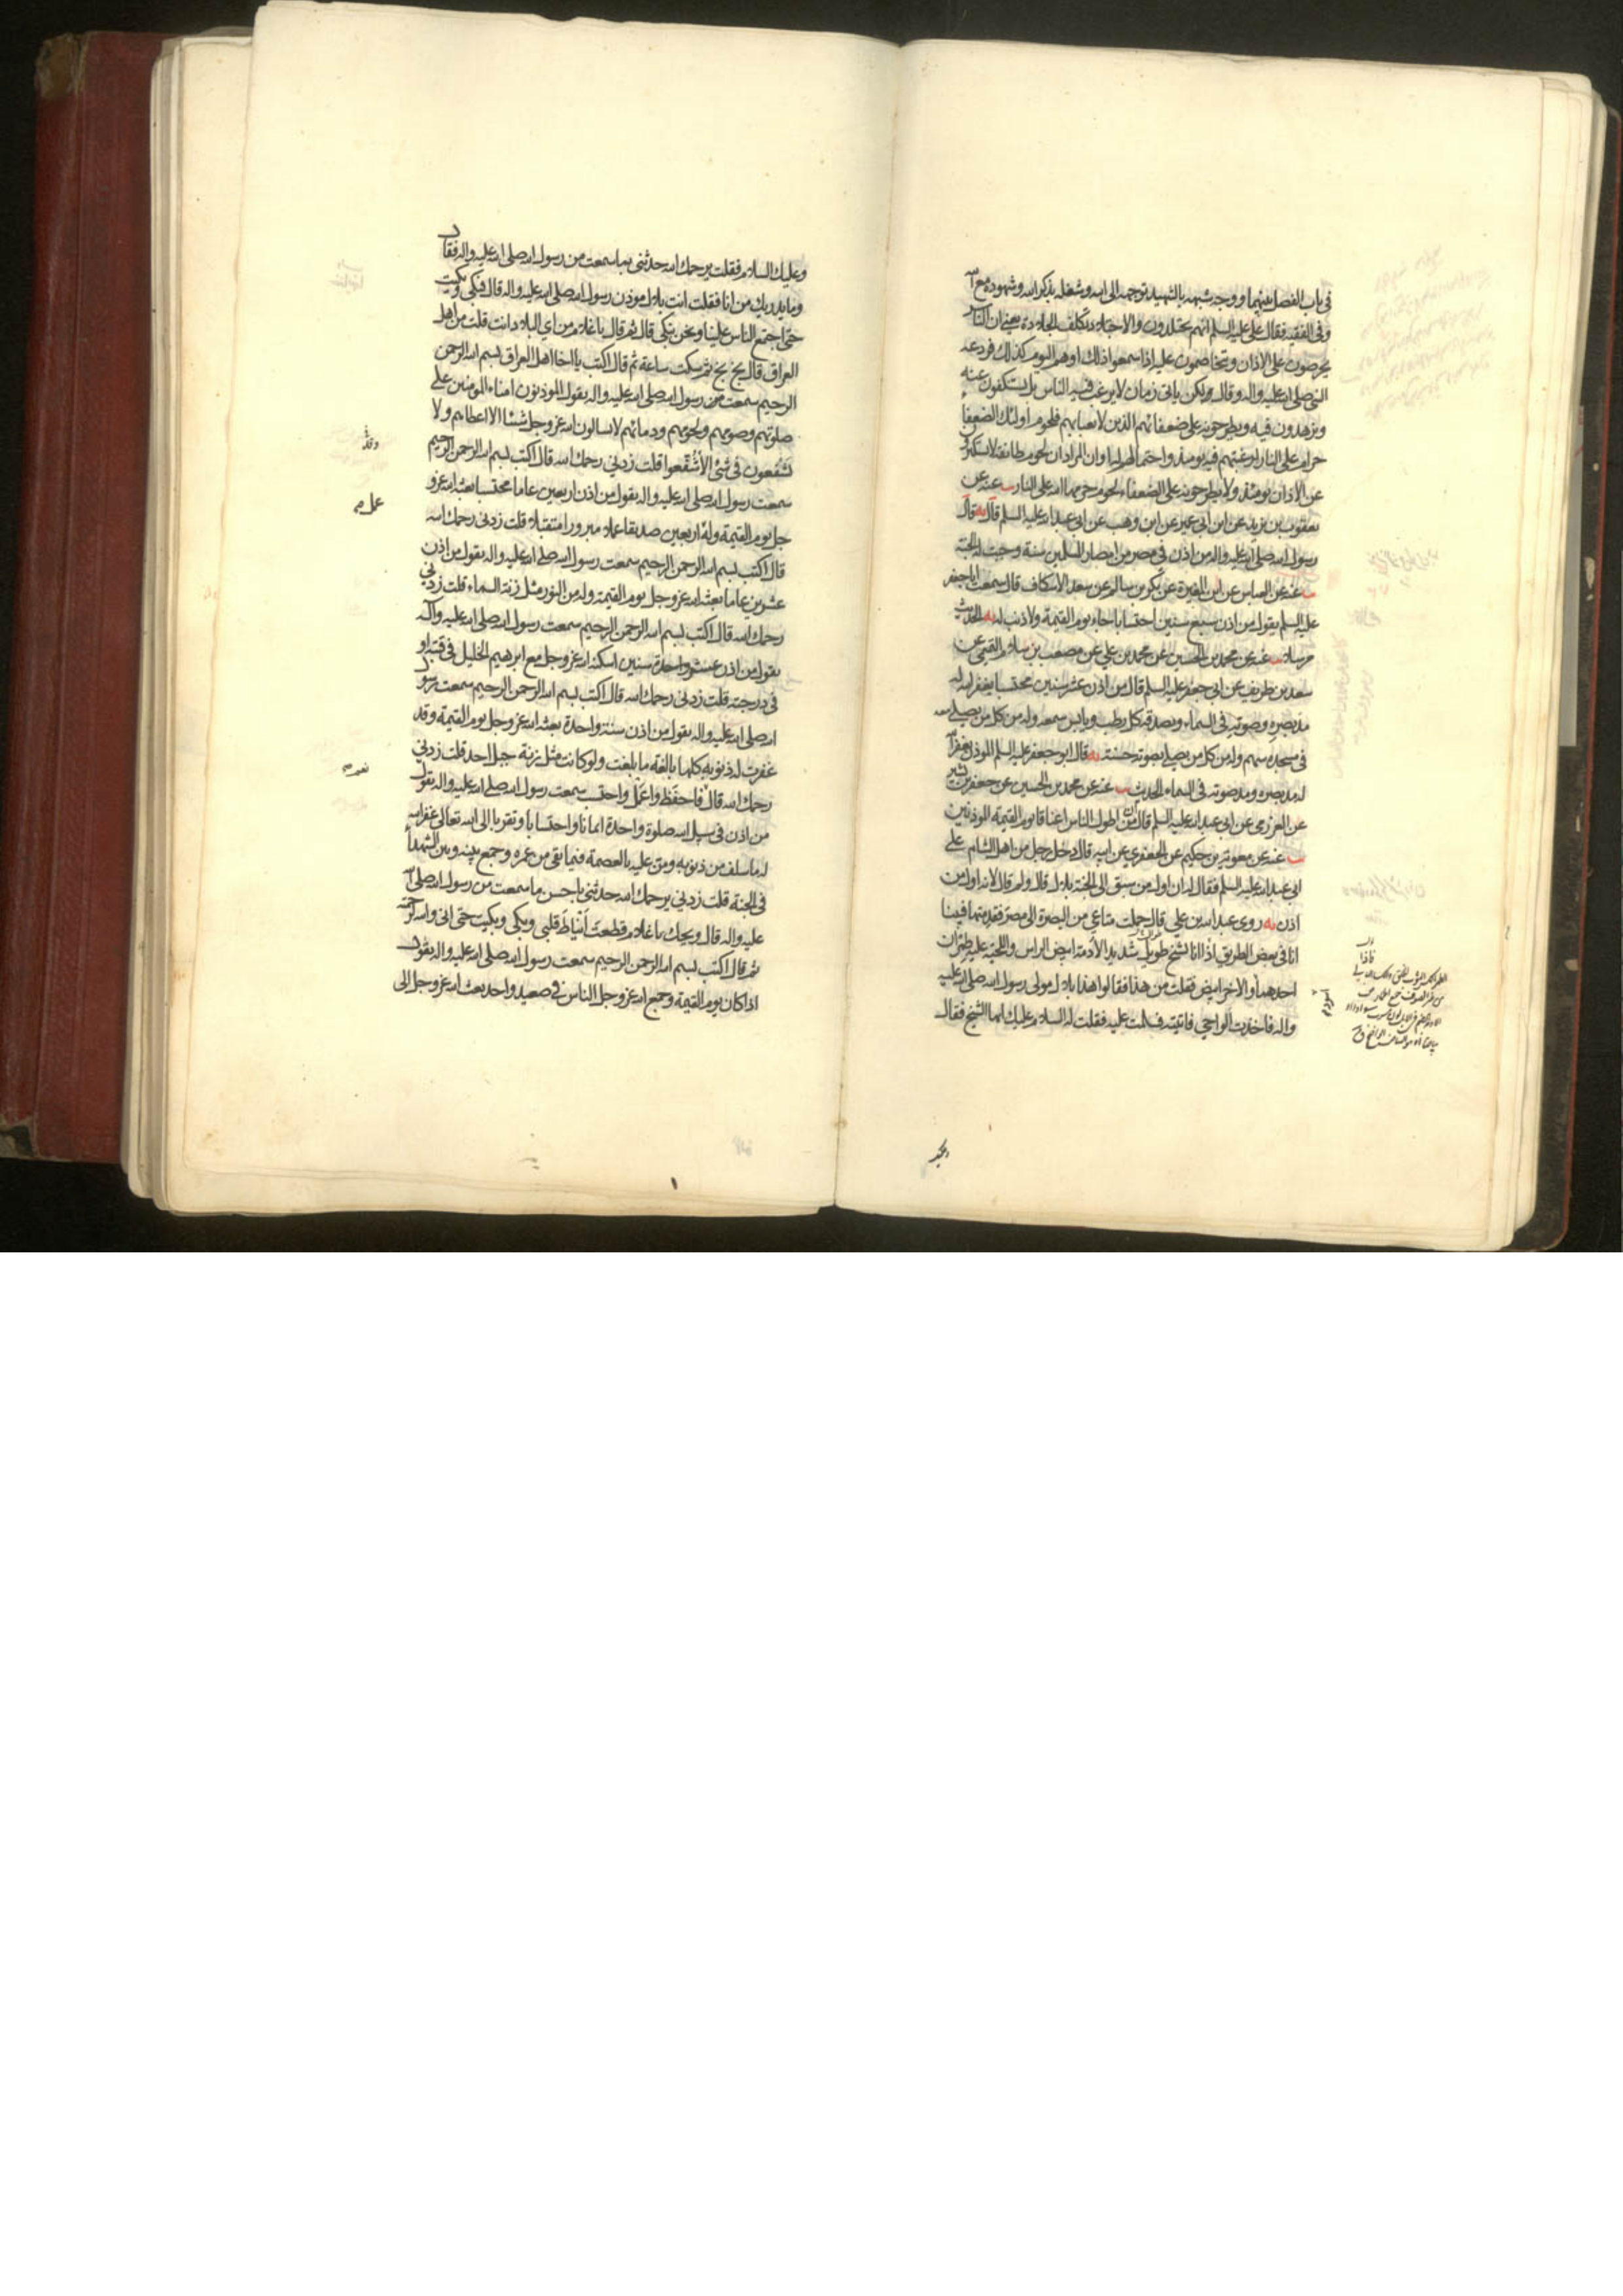 في باب الفصل بينهما ووجه شبهه بالشهيد توجهه الى الله وشغله بذكر الله وشهوده مع الله
وفى الفقيه فقال على عليه السلم انهم يجتلدون والاجتلاد تكلف الجلادة يعنى ان الناس
يحرصون على الاذان ويتخاصمون عليه اذا سمعوا ذلك او هم اليوم كذلك فردعه
النبي صلى الله عليه واله وقال ولكن ياتى زمان لا يرغب فيه الناس بل يستكفون عنه
ويزهدون فيه ويطرحونه على ضعفائهم الذين لا يعبا بهم فلحوم اولئك الضعفاء
حرام على النار لرغبتهم فيه يومئذ واحتمالهم
عن الاذان يومئذ ولا يطرحونه على الضعفاء لحوم حرمها الله على النار يب عنه عن
يعقوب بن يزيد عن ابن ابى عمير عن ابن وهب عن ابى عبد الله عليه السلم قال يه قال
رسول الله صلى الله عليه واله من اذن فى مصر من امصار المسلمين سنة وجبت له الجنة
يب عنه عن العباس عن ابن المغيرة عن بكر بن سالم عن سعد الاسكاف قال سمعت ابا جعفر
عليه السلم يقول من اذن سبع سنين احتسابا جاء يوم القيمة ولا ذنب له يه الحديث
مرسلا يب عنه عن محمد بن الحسين عن محمد بن علي عن مصعب بن سلام التميمى عن
سعد بن طريف عن ابى جعفر عليه السلم قال من اذن عشر سنين محتسبا يغفر الله له
مد بصره وصوته فى السماء ويصدقه كل رطب ويابس سمعه وله من كل من يصلي معه
فى مسجده سهم وله من كل من يصلي بصوته حسنة يه قال ابو جعفر عليه السلم المؤذن يغفر الله
له مد بصره ومد صوته فى السماء الحديث يب عنه عن محمد بن الحسين عن جعفر بن بشير
عن العرزمى عن ابى عبد الله عليه السلم قال ان من اطول الناس اعناقا يوم القيمة الموذنين
يب عنه عن معوية بن حكيم عن الجعفري عن ابيه قال دخل رجل من اهل الشام على
ابى عبد الله عليه السلم فقال له ان اول من سبق الى الجنة بلال قال ولم قال لانه اول من
اذن يه روى عبد الله بن علي قال حملت متاعي من البصرة الى مصر فقدمتها فبينا
انا فى بعض الطريق اذا انا بشيخ طويل شديد الادمة ابيض الراس واللحية عليه طمران
احدهما اسود والاخر ابيض فقلت من هذا فقالوا هذا بلال مولى رسول الله صلى الله عليه
واله فاخذت الواحي فاتيته فسلمت عليه فقلت له السلام عليك ايها الشيخ فقال
وعليك السلام فقلت يرحمك الله حدثنى بما سمعت من رسول الله صلى الله عليه واله فقال
وما يدريك من انا فقلت انت بلال موذن رسول الله صلى الله عليه واله قال فبكى وبكيت
حتى اجتمع الناس علينا ونحن نبكى قال ثم قال يا غلام من اي البلاد انت قلت من اهل
العراق قال بخ بخ ثم سكت ساعة ثم قال اكتب يا اخا اهل العراق بسم الله الرحمن
الرحيم سمعت من رسول الله صلى الله عليه واله يقول الموذنون امناء المومنين على
صلوتهم وصومهم ولحومهم ودمائهم لا يسالون الله عز وجل شيئا الا اعطاهم ولا
يشفعون فى شئ الا شفعوا قلت زدنى رحمك الله قال اكتب بسم الله الرحمن الرحيم
سمعت رسول الله صلى الله عليه واله يقول من اذن اربعين عاما محتسبا بعثه الله عز و
جل يوم القيمة وله اربعين صديقا عملا مبرورا متقبلا قلت زدنى رحمك الله
قال اكتب بسم الله الرحمن الرحيم سمعت رسول الله صلى الله عليه واله يقول من اذن
عشرين عاما بعثه الله عز وجل يوم القيمة وله من النور مثل زنة السماء قلت زدنى
رحمك الله قال اكتب بسم الله الرحمن الرحيم سمعت رسول الله صلى الله عليه واله
يقول من اذن عشر سنين اسكنه الله عز وجل مع ابرهيم الخليل فى قبته او
فى درجته قلت زدنى رحمك الله قال اكتب بسم الله الرحمن الرحيم سمعت رسول
الله صلى الله عليه واله يقول من اذن سنة واحدة بعثه الله عز وجل يوم القيمة وقد
غفرت له ذنوبه كلها بالغة ما بلغت ولو كانت مثل زنة جبل احد قلت زدنى
رحمك الله قال فاحفظ واعمل واحتسب سمعت رسول الله صلى الله عليه واله يقول
من اذن فى سبيل الله صلوة واحدة ايمانا واحتسابا وتقربا الى الله تعالى غفر الله
له ما سلف من ذنوبه ومن عليه بالعصمة فيما بقى من عمره وجمع بينه وبين الشهداء
فى الجنة قلت زدنى يرحمك الله حدثنى باحسن ما سمعت من رسول الله صلى الله
عليه واله قال ويحك يا غلام قطعت انياط قلبى وبكى وبكيت حتى انى والله لرحمته
ثم قال اكتب بسم الله الرحمن الرحيم سمعت رسول الله صلى الله عليه واله يقول
اذا كان يوم القيمة وجمع الله عز وجل الناس فى صعيد واحد بعث الله عز وجل الى